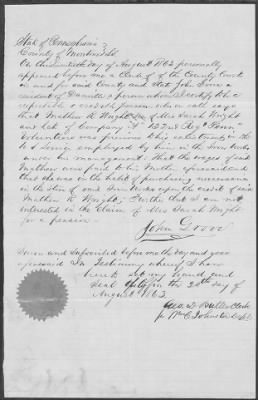 State of Pennsylvania
County of Montour Ss
On this 20th day of August 1863 personally
appeared before me a Clerk of the County Court
in and for said County and State John Grove a
resident of Danville a person whom I certify to be a
reputable & credible person who on oath says
that Mathew R Wright Son of Mrs Sarah Wright
and late of Company "F" 132nd Regt "Penn"
Volunteers was previous to his entering in the
U S Service employed by him in the Iron Works
under his management: That the wages of said
Mathew were paid to his Mother aforesaid and
that she was in the habit of purchasing necessaries
in the store of said Iron Works upon the credit of said
Mathew R Wright, Further that I am not
interested in the Claim of Mrs Sarah Wright
for a pension
John Grove
Sworn and Subscribed before me the day and year
aforesaid In Testimony whereof I have
hereto set my hand and
Seal this the 20th day of
August 1863
Geo. D. Butler Clerk
pr Wm C Johnston Depty